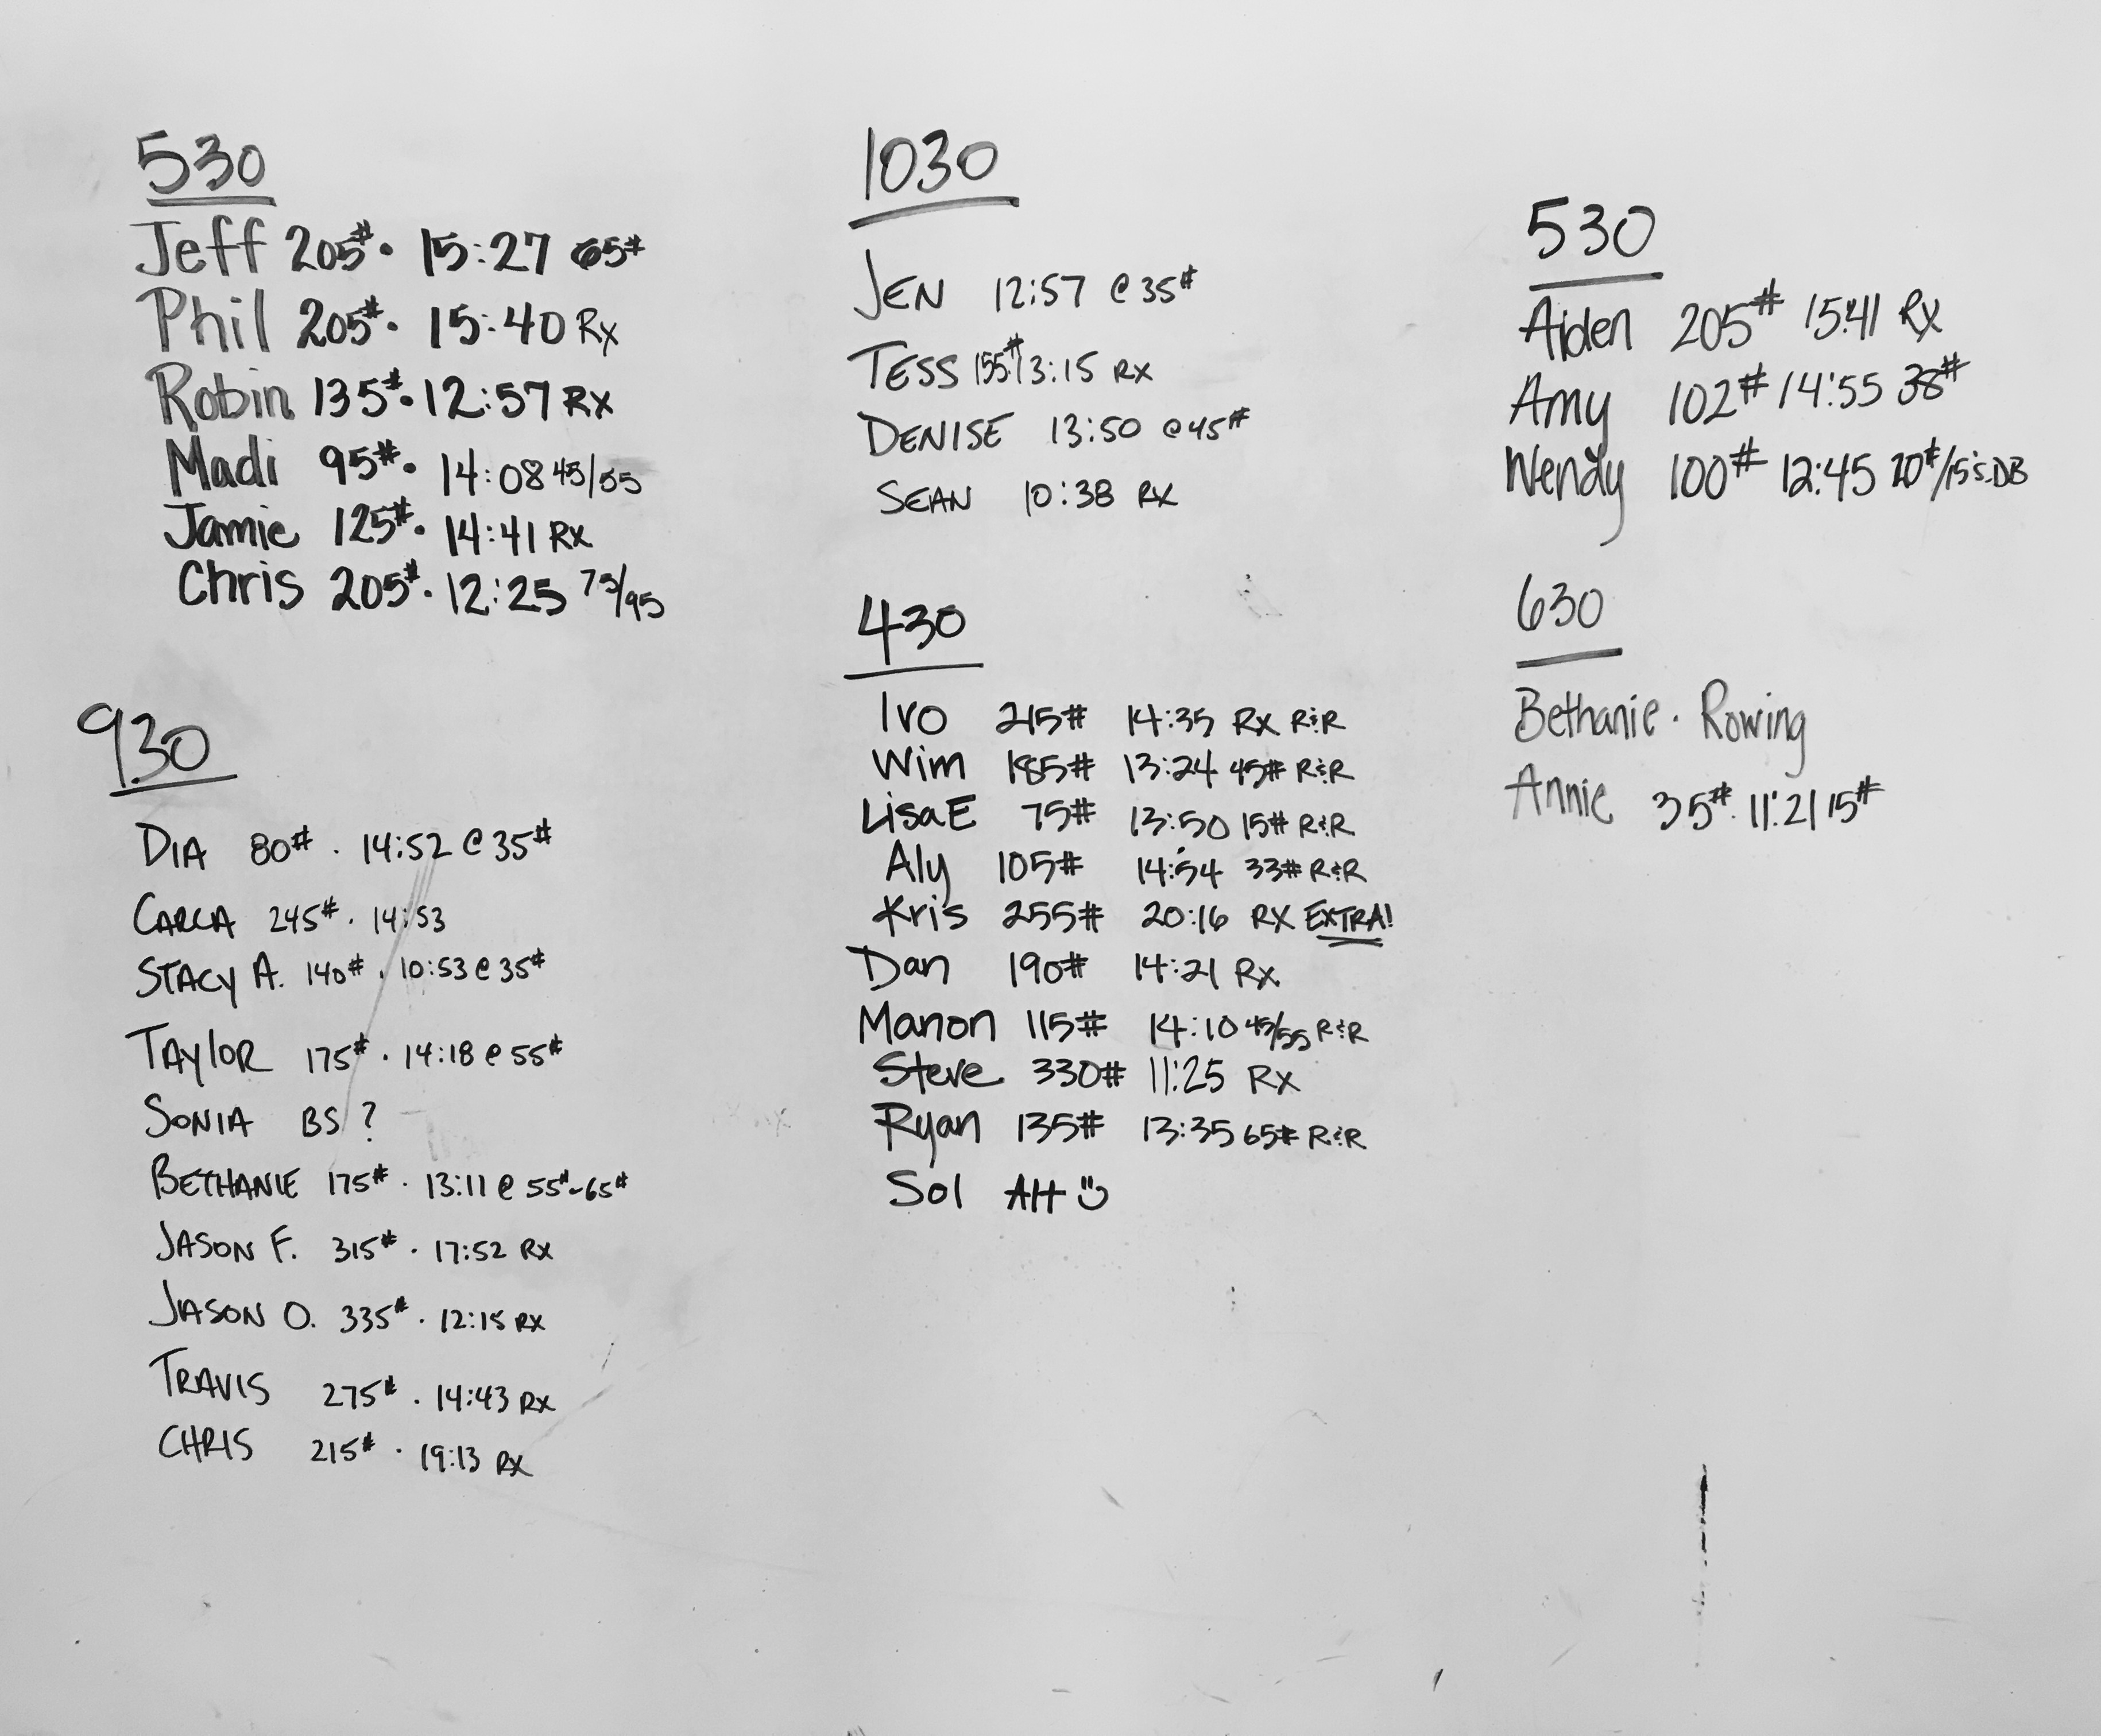 530
Jeff 205#. 15:27 65#
Phil 205#. 15:40 Rx
Robin 135#. 12:57 Rx
Madi 95#. 14:08 45/55
Jamie 125#. 14:41 Rx
Chris 205#. 12:25 75/95
930
DIA 80# . 14:52 @ 35#
CARLA 245# . 14:53
STACY A. 140# . 10:53 @ 35#
TAYLOR 175# . 14:18 @ 55#
SONIA BS ?
BETHANIE 175# . 13:11 @ 55#-65#
JASON F. 315# . 17:52 RX
JASON O. 335# . 12:15 RX
TRAVIS 275# . 14:43 RX
CHRIS 215# . 19:13 RX
1030
JEN 12:57 @ 35#
TESS 155# 13:15 RX
DENISE 13:50 @ 45#
SEAN 10:38 RX
430
Ivo 215# 14:35 RX R&R
Wim 185# 13:24 45# R&R
Lisa E 75# 13:50 15# R&R
Aly 105# 14:54 33# R&R
Kris 255# 20:16 RX EXTRA!
Dan 190# 14:21 Rx
Manon 115# 14:10 45/55 R&R
Steve 330# 11:25 RX
Ryan 135# 13:35 65# R&R
Sol Alt
530
Aiden 205# 15:41 RX
Amy 102# 14:55 38#
Wendy 100# 12:45 20#/15's DB
630
Bethanie . Rowing
Annie 35#. 11:21 15#